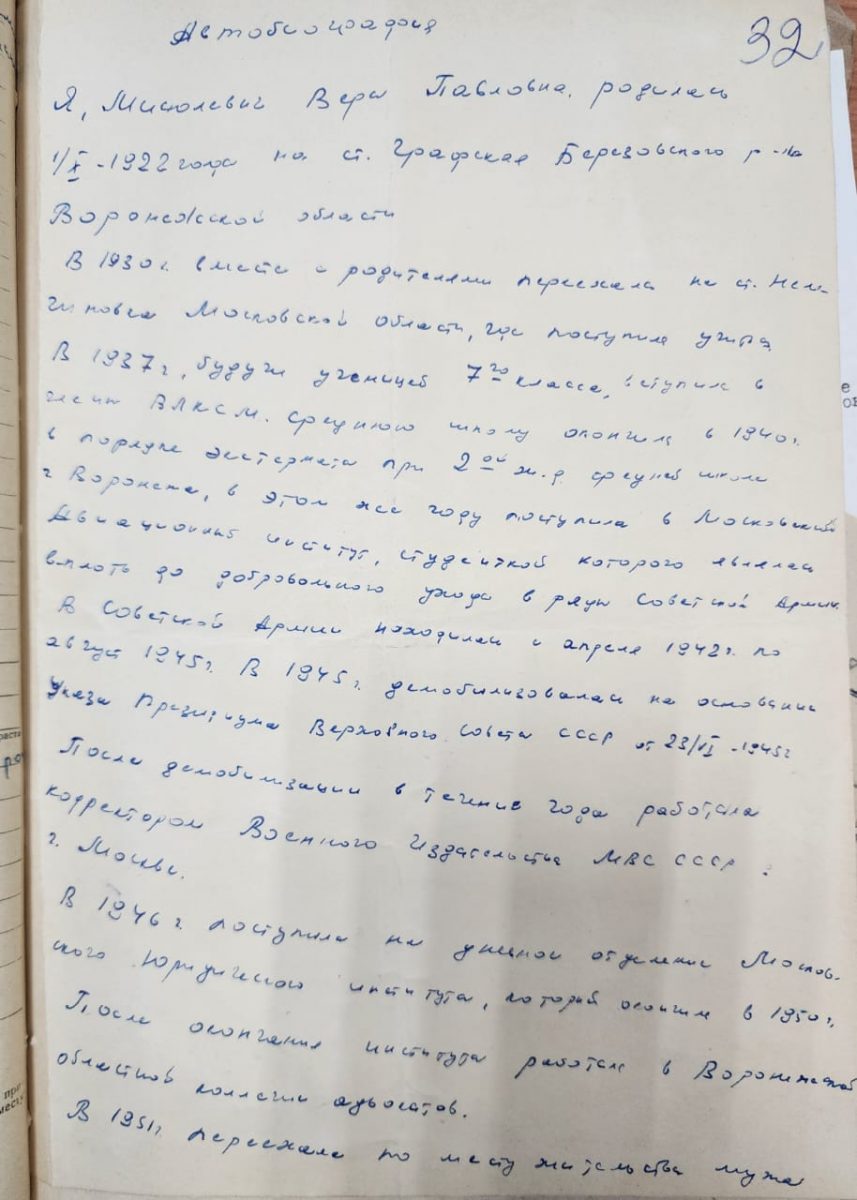 Автобиография
32
Я, Мисюлевич Вера Павловна, родилась
1/X - 1922 года на ст. Графская Березовского р-на
Воронежской области
В 1930 г. вместе с родителями переехала на ст. Нем-
чиновка Московской области, где поступила учиться
В 1937 г, будучи ученицей 7го класса, вступила в
члены ВЛКСМ. Среднюю школу окончила в 1940 г.
в порядке экстерната при 2ой ж.д. средней школе
г Воронежа, в этом же году поступила в Московский
Авиационный институт, студенткой которого являлась
вплоть до добровольного ухода в ряды Советской Армии.
В Советской Армии находилась с апреля 1942 г. по
август 1945 г. В 1945 г. демобилизовалась на основании
Указа Президиума Верховного Совета СССР от 23/VI - 1945 г
После демобилизации в течение года работала
корректором Военного Издательства МВС СССР
г. Москве.
В 1946 г. поступила на дневное отделение Москов-
ского Юридического института, который окончила в 1950 г.
После окончания института работала в Воронежской
областной коллегии адвокатов.
В 1951 г. переехала по месту жительства мужа